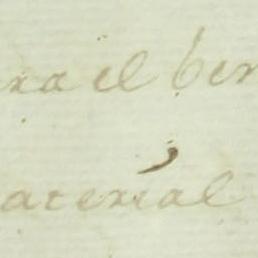 ra el ben
aterial